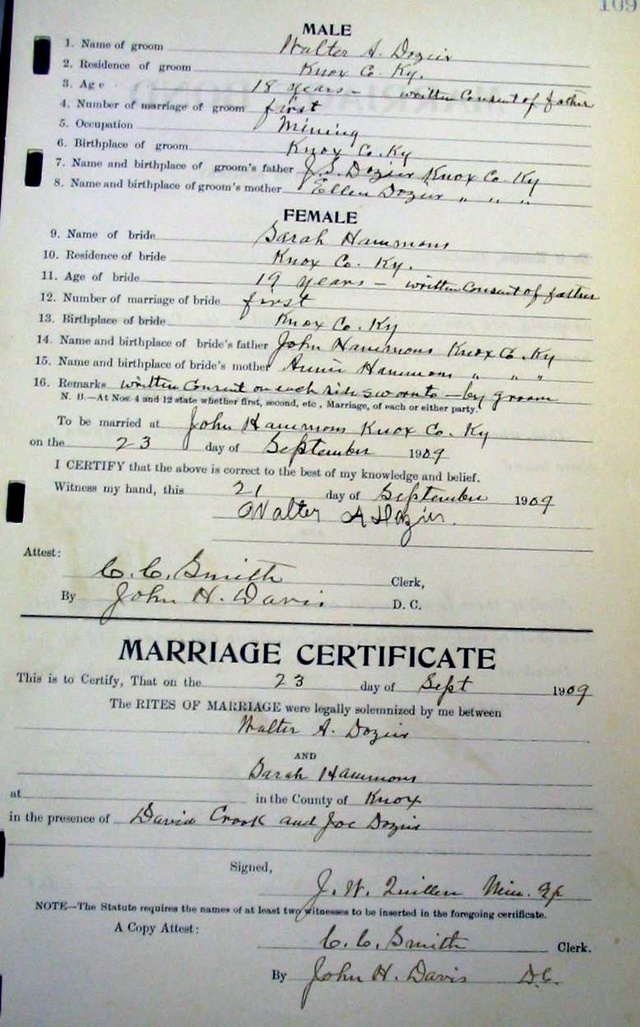 109
MALE
1. Name of groom Walter A. Dozier
2. Residence of groom Knox Co. Ky.
3. Age 18 years - written Consent of father
4. Number of marriage of groom first
5. Occupation Mining
6. Birthplace of groom Knox Co. Ky
7. Name and birthplace of groom's father J. S. Dozier Knox Co. Ky
8. Name and birthplace of groom's mother Ellen Dozier " " "
FEMALE
9. Name of bride Sarah Hammons
10. Residence of bride Knox Co. Ky.
11. Age of bride 19 years - written Consent of father
12. Number of marriage of bride first
13. Birthplace of bride Knox Co. Ky
14. Name and birthplace of bride's father John Hammons Knox Co. Ky
15. Name and birthplace of bride's mother Annie Hammons " " "
16. Remarks written Consent on each side sworn to - by groom
N. B.—At Nos. 4 and 12 state whether first, second, etc., Marriage, of each or either party.
To be married at John Hammons Knox Co. Ky
on the 23 day of September 1909
I CERTIFY that the above is correct to the best of my knowledge and belief.
Witness my hand, this 21 day of September 1909
Walter A Dozier.
Attest:
C. C. Smith Clerk,
By John H. Davis D. C.
MARRIAGE CERTIFICATE
This is to Certify, That on the 23 day of Sept 1909
The RITES OF MARRIAGE were legally solemnized by me between
Walter A. Dozier
AND
Sarah Hammons
at in the County of Knox
in the presence of David Crook and Joe Dozier
Signed,
J. W. Quillen Min.
NOTE—The Statute requires the names of at least two witnesses to be inserted in the foregoing certificate.
A Copy Attest:
C. C. Smith Clerk.
By John H. Davis D.C.